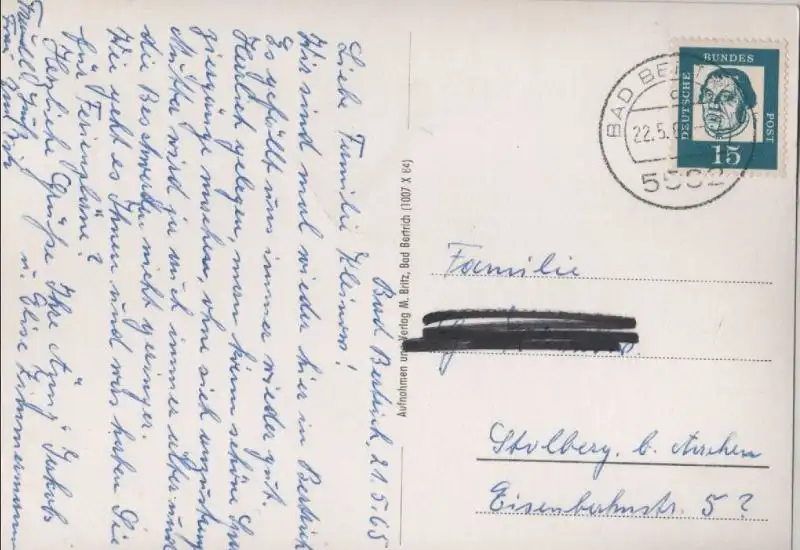 Bad Bertrich, 21.5.65
Liebe Familie
Wir sind mal wieder hier in Bertrich
Es gefällt uns immer wieder gut.
Herrlich gelegen, man kann schöne
machen, ohne sich anzustrengen
Mutter wird ja auch immer älter und
die Beschwerden nicht geringer.
Wie geht es Ihnen und was haben Sie
für Ferienpläne?
Herzliche Grüße Ihre Jakob
u. Elise Zimmermann
Frau
Aufnahmen und Verlag M. Britz, Bad Bertrich (1007 X 64)
BAD BER
22.5.6
5582
DEUTSCHE
BUNDES
POST
15
Familie
Stolberg. b. Aachen
Eisenbahnstr. 5?